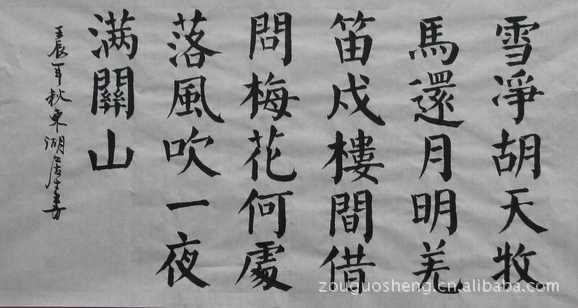 雪淨胡天牧
馬還月明羌
笛戍樓間借
問梅花何處
落風吹一夜
满關山
壬辰年秋東湖居士書
zouguosheng.cn.alibaba.com